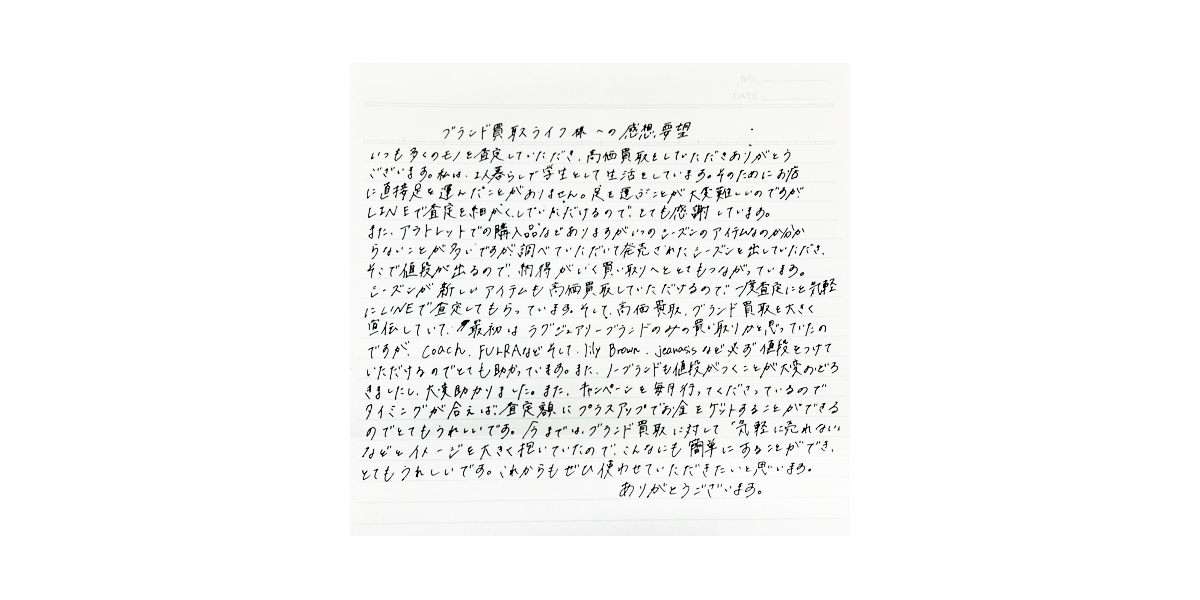 NO.
DATE
ブランド買取スライフ様への感想、要望
いつも多くのモノを査定していただき、高価買取をしていただきありがとう
ございます。私は、1人暮らしで学生として生活をしています。そのためにお店
に直接足を運んだことがありません。足を運ぶことが大変難しいのですが
LINEで査定を細かくしていただけるので、とても感謝しています。
また、アウトレットでの購入品などありますがいつのシーズンのアイテムなのか分か
らないことが多いですが、調べていただいて発売されたシーズンを出していただき、
そこで値段が出るので、納得がいく買い取りへととてもつながっています。
シーズンが新しいアイテムも高価買取していただけるので、一度査定にと気軽
にLINEで査定してもらっています。そして、高価買取、ブランド買取を大きく
宣伝していて、最初はラグジュアリーブランドのみの買い取りかと思っていたの
ですが、coach、FURLAなどそして、lily Brown、jeanasisなど必ず値段をつけて
いただけるのでとても助かっています。また、ノーブランドも値段がつくことが大変おどろ
きましたし、大変助かりました。また、キャンペーンを毎月行ってくださっているので
タイミングが合えば、査定額にプラスアップでお金をゲットすることができる
のでとてもうれしいです。今までは、ブランド買取に対して“気軽に売れない”
などとイメージを大きく抱いていたので、こんなにも簡単にすることができ、
とてもうれしいです。これからもぜひ使わせていただきたいと思います。
ありがとうございます。